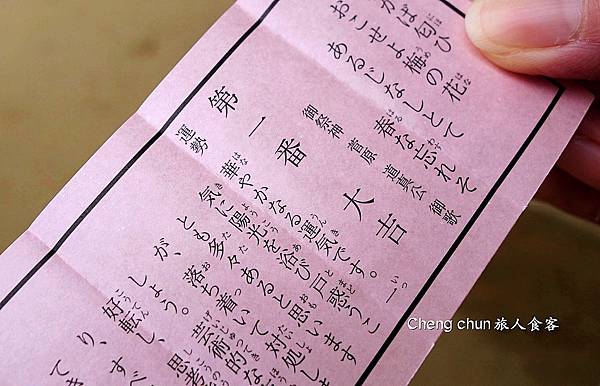 かば匂ひ
おこせよ梅の花
あるじなしとて
春な忘れそ
御祭神 菅原 道真公 御歌
第一番 大吉
運勢
華やかなる運気です。一
気に陽光を浴び戸惑うこ
とも多々あると思います
が、落ち着いて対処しま
しょう。芸術的な
好転し、思考
り、すべ
てき
Cheng chun旅人食客